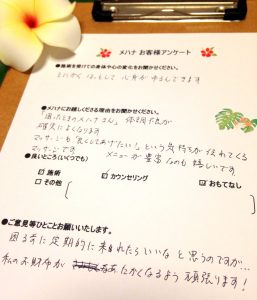 メハナ お客様アンケート
●施術を受けての身体や心の変化をお聞かせください。
とにかく ほっとして 心身が ゆるんできます
●メハナにお越しくださる理由をお聞かせください。
「困ったときのメハナさん」 体調不良が
確実に よくなります
マッサージも "良くしてあげたい!" という気持ちが 伝わってくる
マッサージです メニューが 豊富なのも 嬉しいです
●良いところ(いくつでも)
☑ 施術 ☑ カウンセリング ☑ おもてなし
□ その他
●ご意見等ひとことお願いいたします。
困る前に 定期的に 来れたらいいな と思うのですが…
私のお財布が あたたかくなるよう 頑張ります!